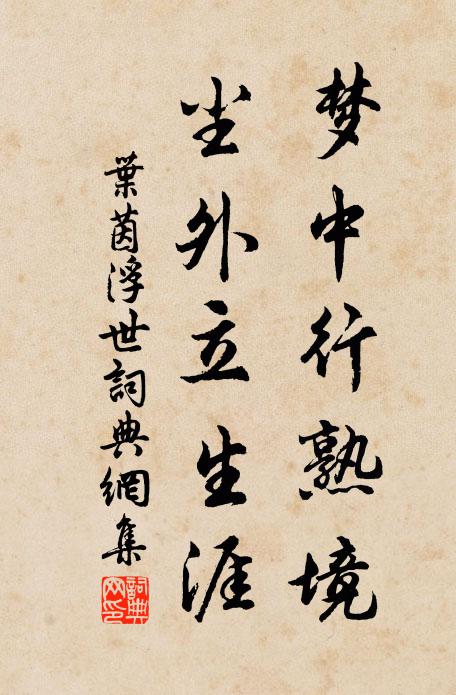 梦中行熟境
尘外立生涯
葉茵浮世詞典網集
詞典網印